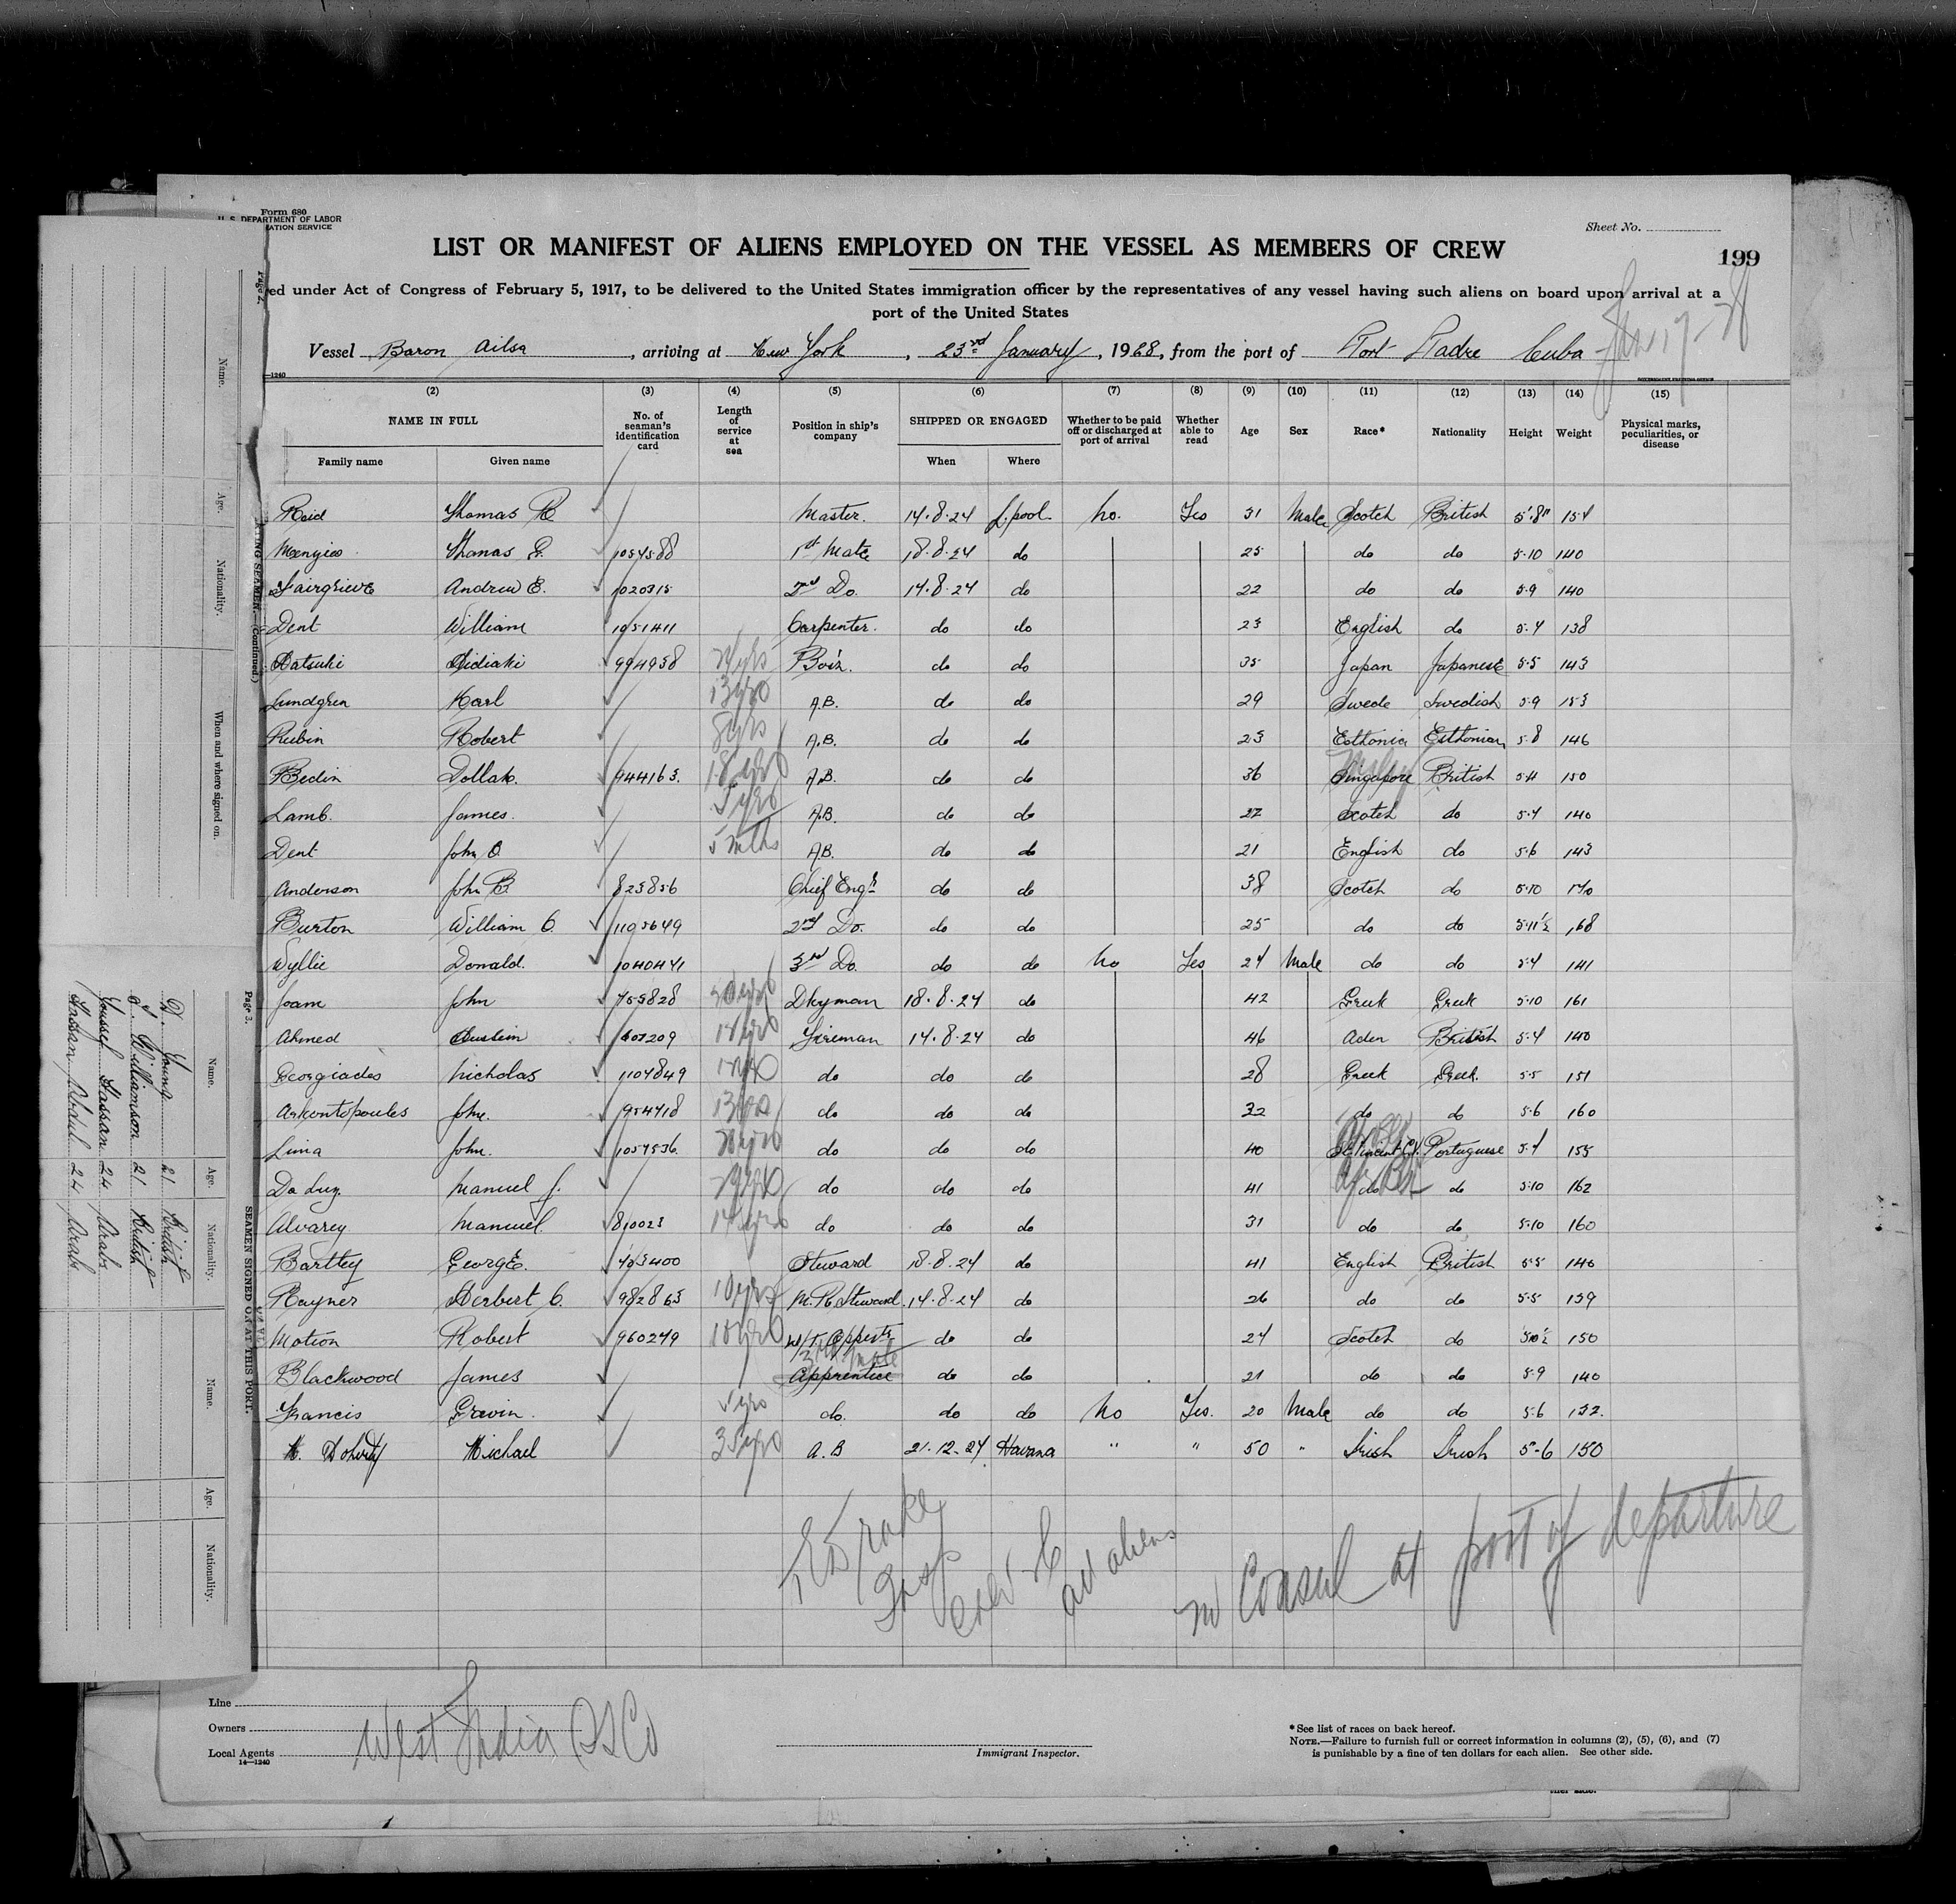 Form 680
U. S. DEPARTMENT OF LABOR
ATION SERVICE
Sheet No.
LIST OR MANIFEST OF ALIENS EMPLOYED ON THE VESSEL AS MEMBERS OF CREW
199
ed under Act of Congress of February 5, 1917, to be delivered to the United States immigration officer by the representatives of any vessel having such aliens on board upon arrival at a
port of the United States
Vessel Baron Ailsa, arriving at New York, 23rd January, 1928, from the port of Port Padre Cuba
(2) (3) (4) (5) (6) (7) (8) (9) (10) (11) (12) (13) (14) (15)
NAME IN FULL No. of seaman's identification card Length of service at sea Position in ship's company SHIPPED OR ENGAGED Whether to be paid off or discharged at port of arrival Whether able to read Age Sex Race* Nationality Height Weight Physical marks, peculiarities, or disease
Family name Given name When Where
Reid Thomas R Master. 14.8.27 L'pool No. Yes 31 Male Scotch British 5'8" 154
Menzies Thomas G. 1054588 1st Mate 18.8.27 do 25 do do 5.10 140
Fairgrieve Andrew E. 1020315 2nd Do. 14.8.27 do 22 do do 5.9 140
Dent William 1051411 Carpenter. do do 23 English do 5.4 138
Hatsuki Hidiaki 994958 Bos'n. do do 35 Japan Japanese 5.5 143
Lundgren Karl 13 yrs A.B. do do 29 Swede Swedish 5.9 153
Rubin Robert 8 yrs A.B. do do 23 Esthonia Esthonian 5.8 146
Bedin Dollah. 944163. 18 yrs A.B. do do 36 Singapore British 5.4 150
Lamb. James. 5 yrs A.B. do do 22 Scotch do 5.4 140
Dent John O. 5 mths A.B. do do 21 English do 5.6 143
Anderson John B 823856 Chief Engr do do 38 Scotch do 5.10 170
Burton William C. 1105649 2nd Do. do do 25 do do 5.11½ 168
Wyllie Donald. 1040441 3rd Do. do do No Yes 24 Male do do 5.4 141
Joam John 755828 Dkyman 18.8.27 do 42 Greek Greek 5.10 161
Ahmed Hussein 603209 Fireman 14.8.27 do 46 Aden British 5.4 140
Georgiades Nicholas 1104849 do do do 28 Greek Greek. 5.5 151
Arkontopoules John. 954718 13 yrs do do do 32 do do 5.6 160
Lima John. 1054536. do do do 40 St Vincent C.V. Portuguese 5.4 155
Da Luz. Manuel J. do do do 41 do do 5.10 162
Alvarez Manuel. 810023 14 yrs do do do 31 do do 5.10 160
Bartley George. 493400 Steward 18.8.27 do 41 English British 5.5 140
Rayner Herbert C. 982863 10 yrs M.R Steward. 14.8.27 do 26 do do 5.5 139
Motion Robert 960249 10 yrs W/T. Oppertr do do 24 Scotch do 5.10½ 150
3rd mate
Blackwood James Apprentice do do 21 do do 5.9 140
Francis Gravin. 5 yrs do. do do No Yes. 20 Male do do 5.6 132.
M. Doherty Michael 35 yrs A.B 21.12.27 Havana " " 50 " Irish Irish 5-6 150
Insp
all aliens
no Consul at port of departure
Line
Owners
Local Agents
West India SS Co
14—1240
Immigrant Inspector.
*See list of races on back hereof.
NOTE.—Failure to furnish full or correct information in columns (2), (5), (6), and (7)
is punishable by a fine of ten dollars for each alien. See other side.
Name. Age. Nationality. When and where signed on.
Page 2.
SEAMEN.—(Continued.)
Page 3.
SEAMEN SIGNED ON AT THIS PORT.
Name. Age. Nationality.
D. Young 21 British
J. Williamson 21 British
Youssef Hassan 24 Arabs
Hassan Abdul 24 Arabs
Name. Age. Nationality.